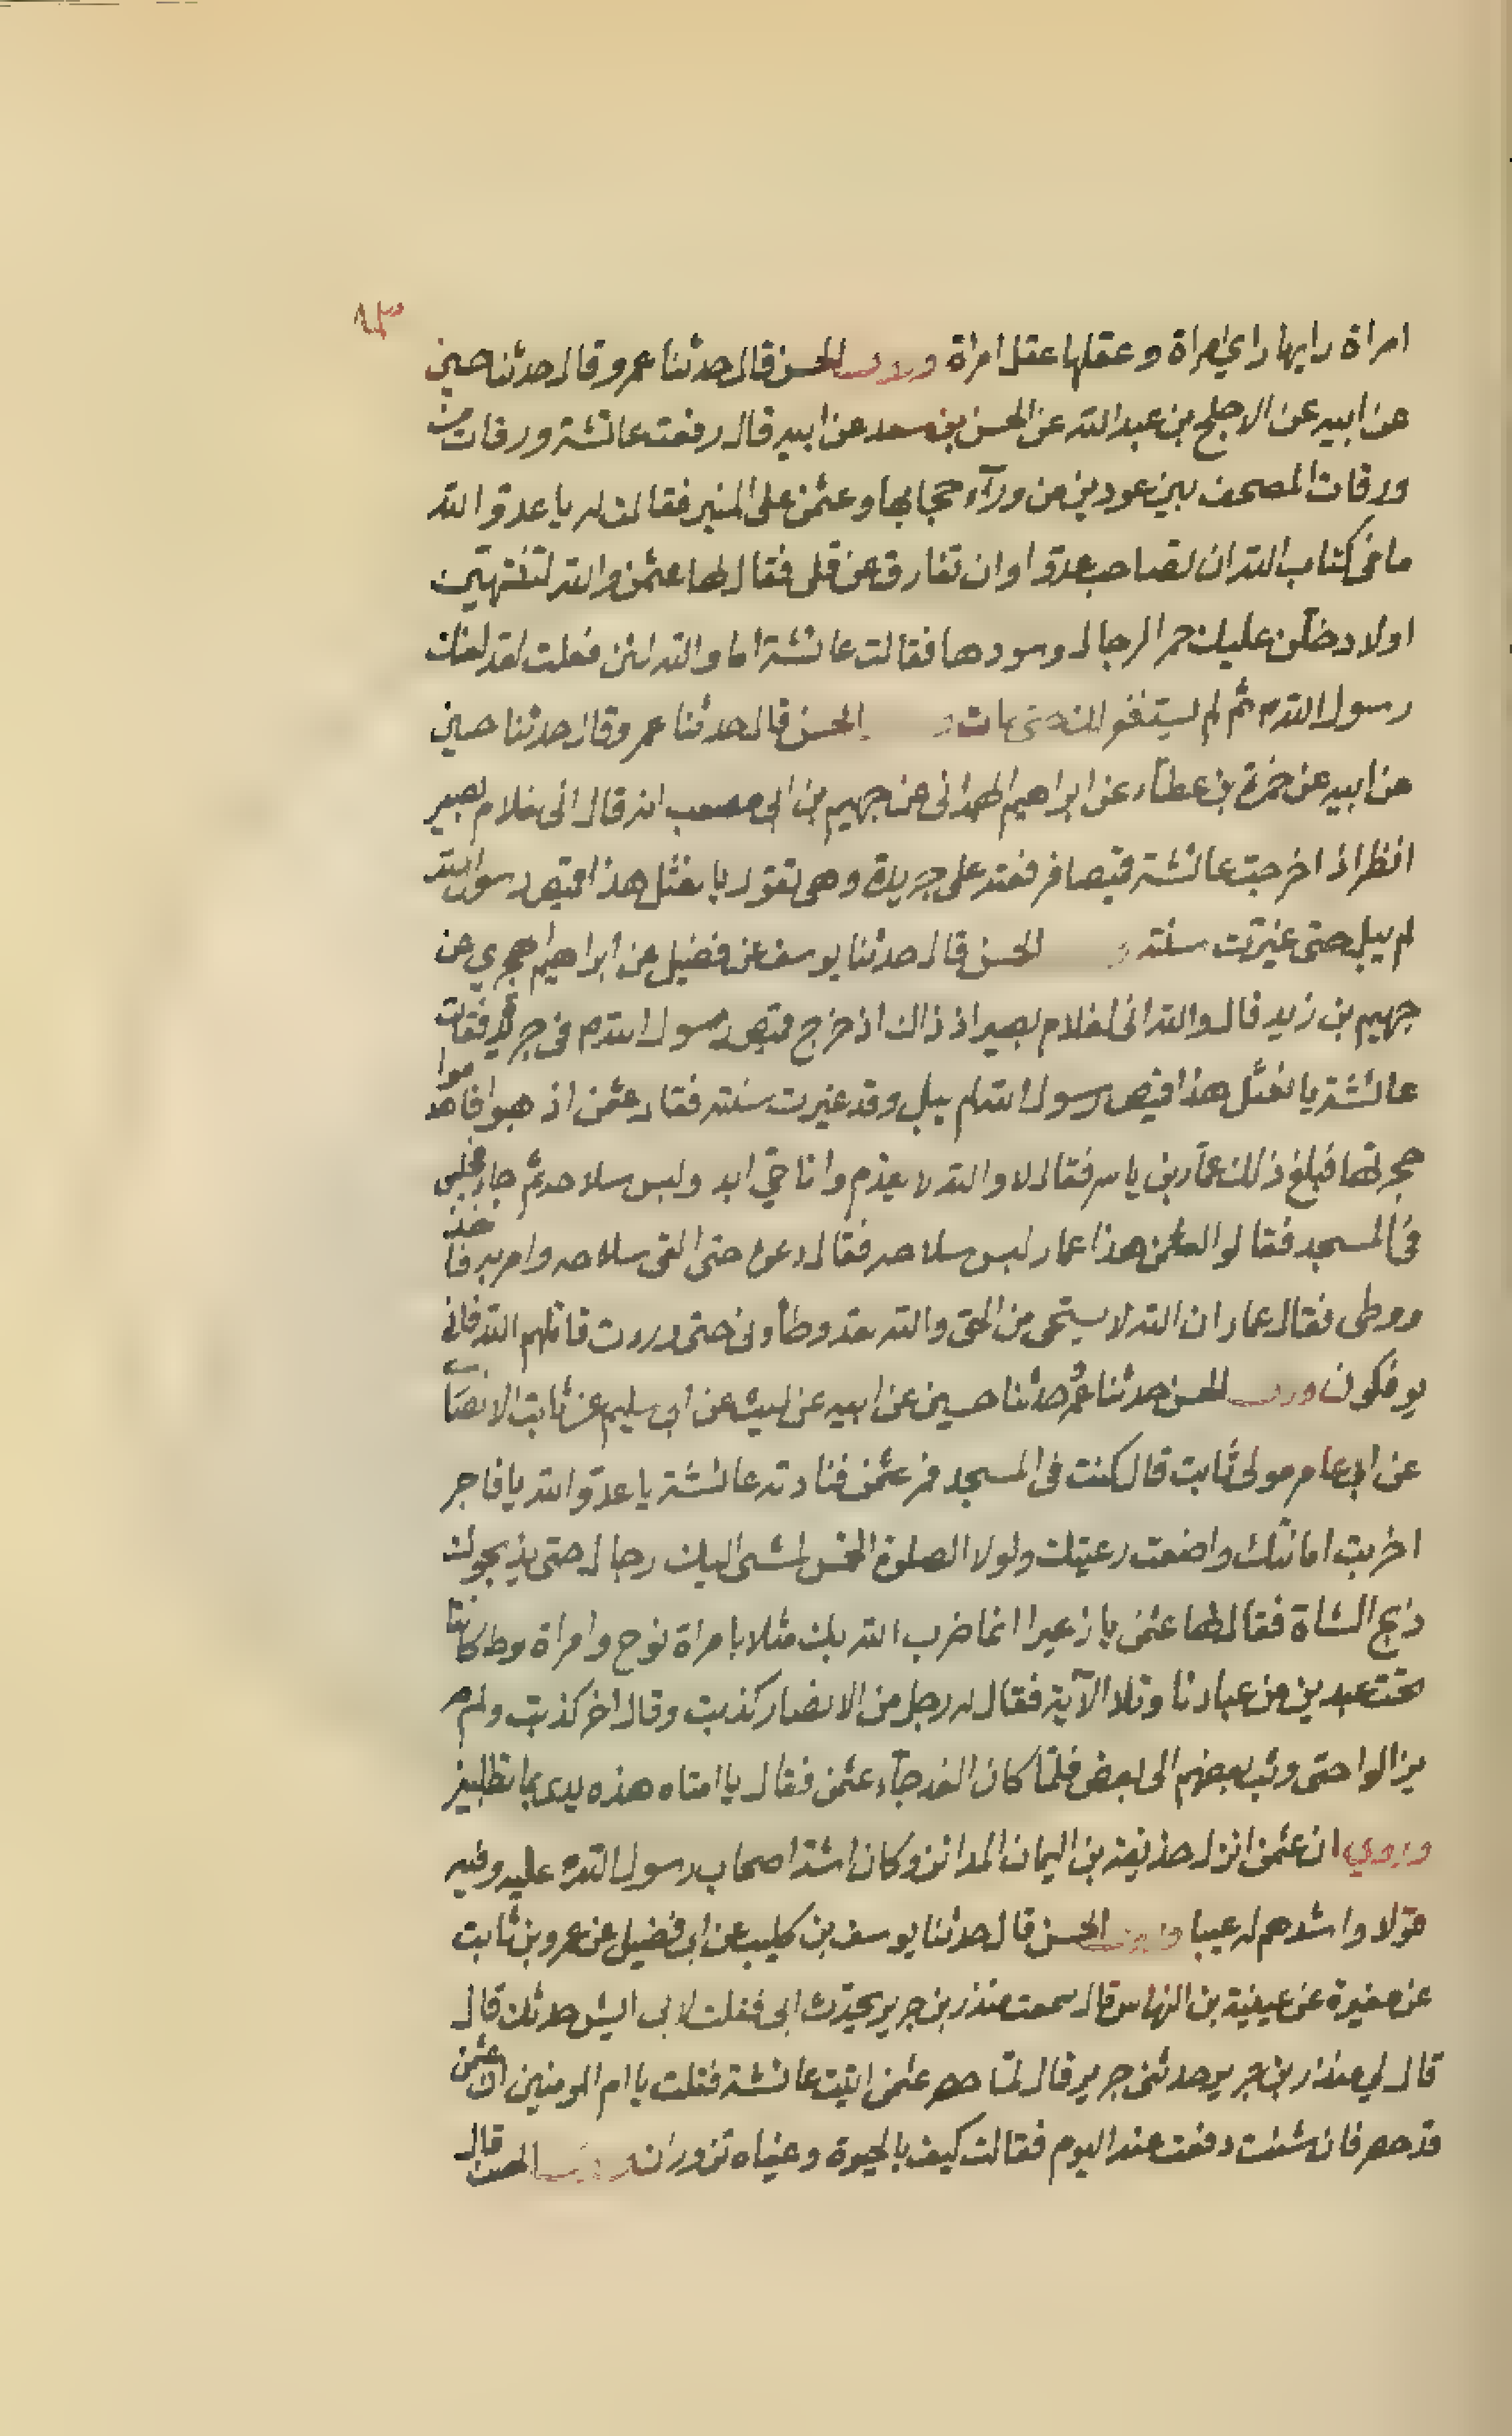 ٨٣
امراة رايها راي امراة وعقلها عقل امراة وروى الحسن قال حدثنا عمرو قال حدثنا حسين
عن ابيه عن الاجلح بن عبد الله عن الحسن بن سعد عن ابيه قال رفعت عائشة ورقات من
ورقات المصحف بين عودين من ورآء حجابها وعثمن على المنبر فقالت له يا عدو الله
ما في كتاب الله ان تصاحب عدوا وان تفارق عن قلى فقال لها عثمن والله لتنتهين
او لادخلن عليك حمر الرجال وسودها فقالت عائشة اما والله لئن فعلت لقد لعنك
رسول الله ثم لم يستغفر لك حتى مات الحسن قال حدثنا عمرو قال حدثنا حسين
عن ابيه عن حمزة بن عطآء عن ابراهيم الهمداني عن جهيم بن ابي مصعب انه قال اني غلام بصير
انظر اذ اخرجت عائشة قميصا فرفعته على جريدة وهي تقول يا نعثل هذا قميص رسول الله
لم يبل حتى غيرت سنته الحسن قال حدثنا يوسف عن فضيل عن ابراهيم الهجري عن
جهيم بن زيد قال والله اني لغلام بصير اذ ذاك اذ خرج قميص رسول الله في جريدة فقالت
عائشة يا نعثل هذا قميص رسول الله لم يبل وقد غيرت سنته فقال عثمن اذهبوا فاهدموا
حجرتها فبلغ ذلك عمار بن ياسر فقال لا والله لا يهدم وانا حي ابد ولبس سلاحه ثم جاء فجلس
في المسجد فقالوا لعثمن هذا عمار لبس سلاحه فقال دعوه حتى القى سلاحه وامر به فاخذ
ووطى فقال عمار ان الله لا يستحي من الحق والله لقد وطأوني حتى وردت قاتلهم الله فاني
يوفكون وروى الحسن حدثنا عمرو حدثنا حسين عن ابيه عن ليث عن ابي سليم عن ثابت الانصاري
عن ابي عامر مولى ثابت قال كنت في المسجد فمر عثمن فنادته عائشة يا عدو الله يا فاجر
اخربت امانتك واضعت رعيتك ولولا الصلوة الخمس لمشى اليك رجال حتى يذبحوك
ذبح الشاة فقال لها عثمن يا زعيرا انما ضرب الله بك مثلا بامراة نوح وامراة لوط كانتا
تحت عبدين من عبادنا وتلا الآية فقال له رجل من الانصار كذبت وقال اخر كذبت ولم
يزالوا حتى وثب بعضهم الى بعض فلما كان الغد جآء عثمن فقال يا امتاه هذه يدي بما تطلبين
وروي ان عثمن انزل حذيفة بن اليمان المدائن وكان اشد اصحاب رسول الله عليه وفيه
قولا واشدهم له عيبا وروى الحسن قال حدثنا يوسف بن كليب عن ابي فضيل عن عمرو بن ثابت
عن مغيرة عن عيينة بن النهاس قال سمعت منذر بن جرير يحدث ابي فقلت لابي ايش حدثك قال
قال لي منذر بن جرير حدثني جرير قال لما حصر عثمن اتيت عائشة فقلت يا ام المومنين ان عثمن
قد حصر فان شئت دفعت عنه اليوم فقالت كيف بالحيوة وعيناه تزوران وروى الحسن قال